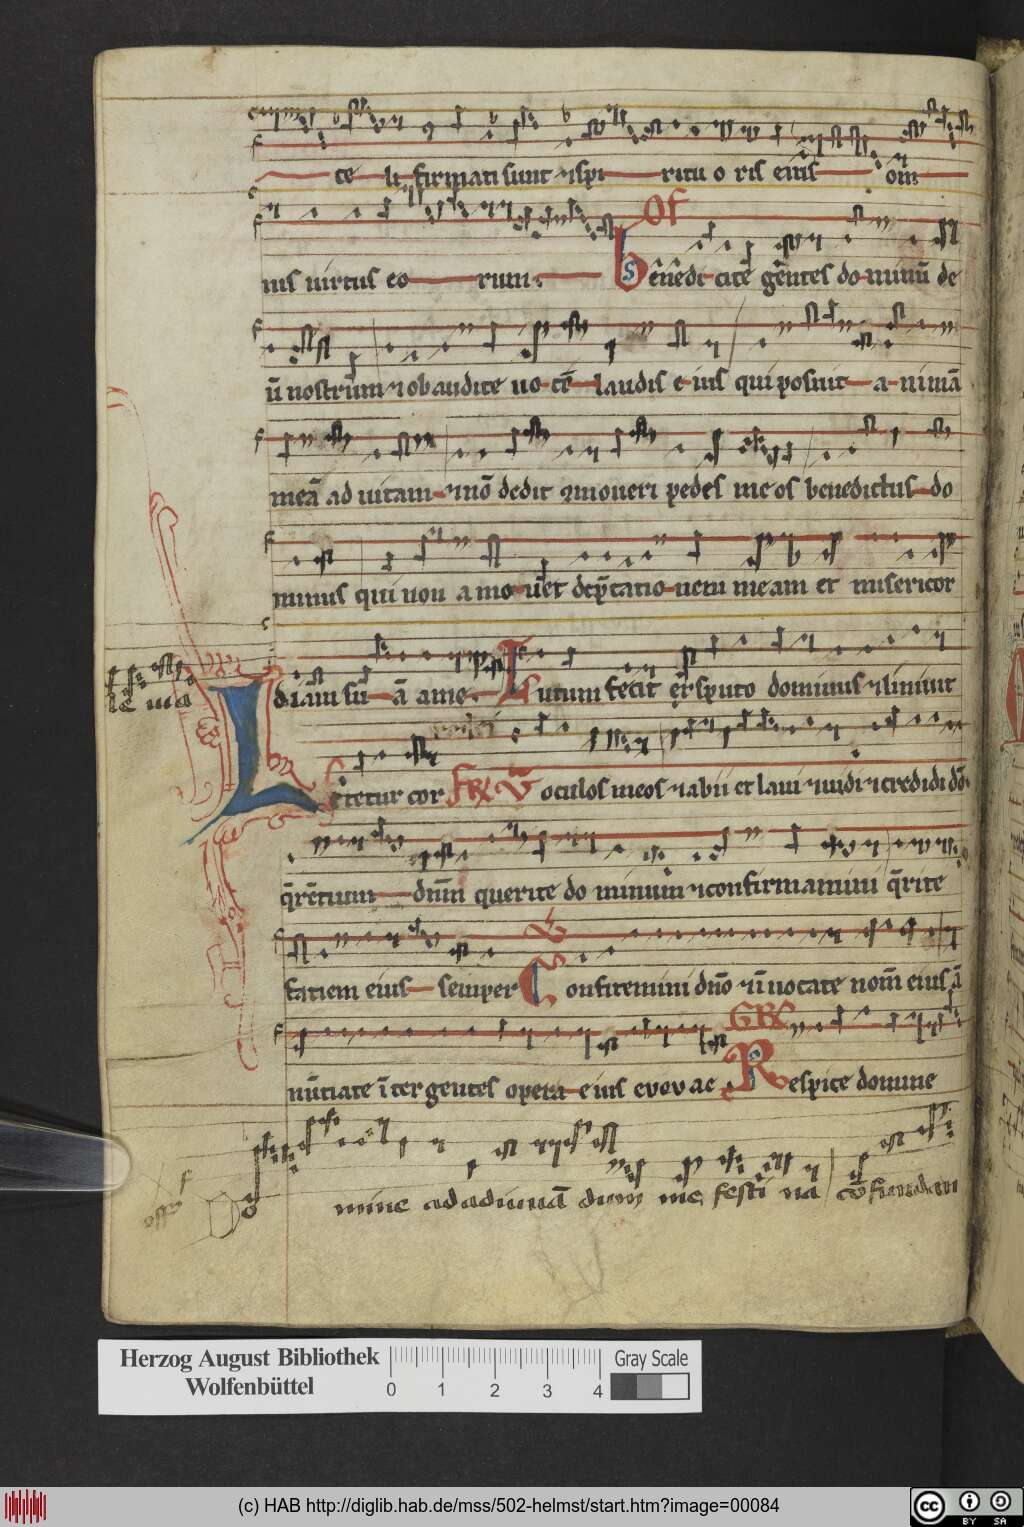 te li firmati sunt ⁊ spi ritu o ris eius om̅
nis uirtus eo rum. Of Benedi cite gentes do minū de
ū nostrum ⁊ obaudite uo cē laudis e ius qui posuit a nimā
meā ad uitam ⁊ nō dedit ꝯmoueri pedes me os benedictus do
minus qui non a mo uet dep̄catio nem meam et misericor
diam su ā a me. Lutum fecit ex sputo dominus ⁊ liniuit
le ma
oculos meos ⁊ abii et laui ⁊ uidi ⁊ credidi dō.
L etetur cor
q̄rētium dn̄m querite do minum ⁊ confirmamini q̄rite
faciem eius semper Confitemini dn̄o ⁊ īuocate nom̄ eius ā
nūtiate īter gentes opera e ius evovae Respice domine
mine ad adiuuā dum me festi na confundan
Herzog August Bibliothek
Wolfenbüttel
0 1 2 3 4
Gray Scale
(c) HAB http://diglib.hab.de/mss/502-helmst/start.htm?image=00084
cc BY SA